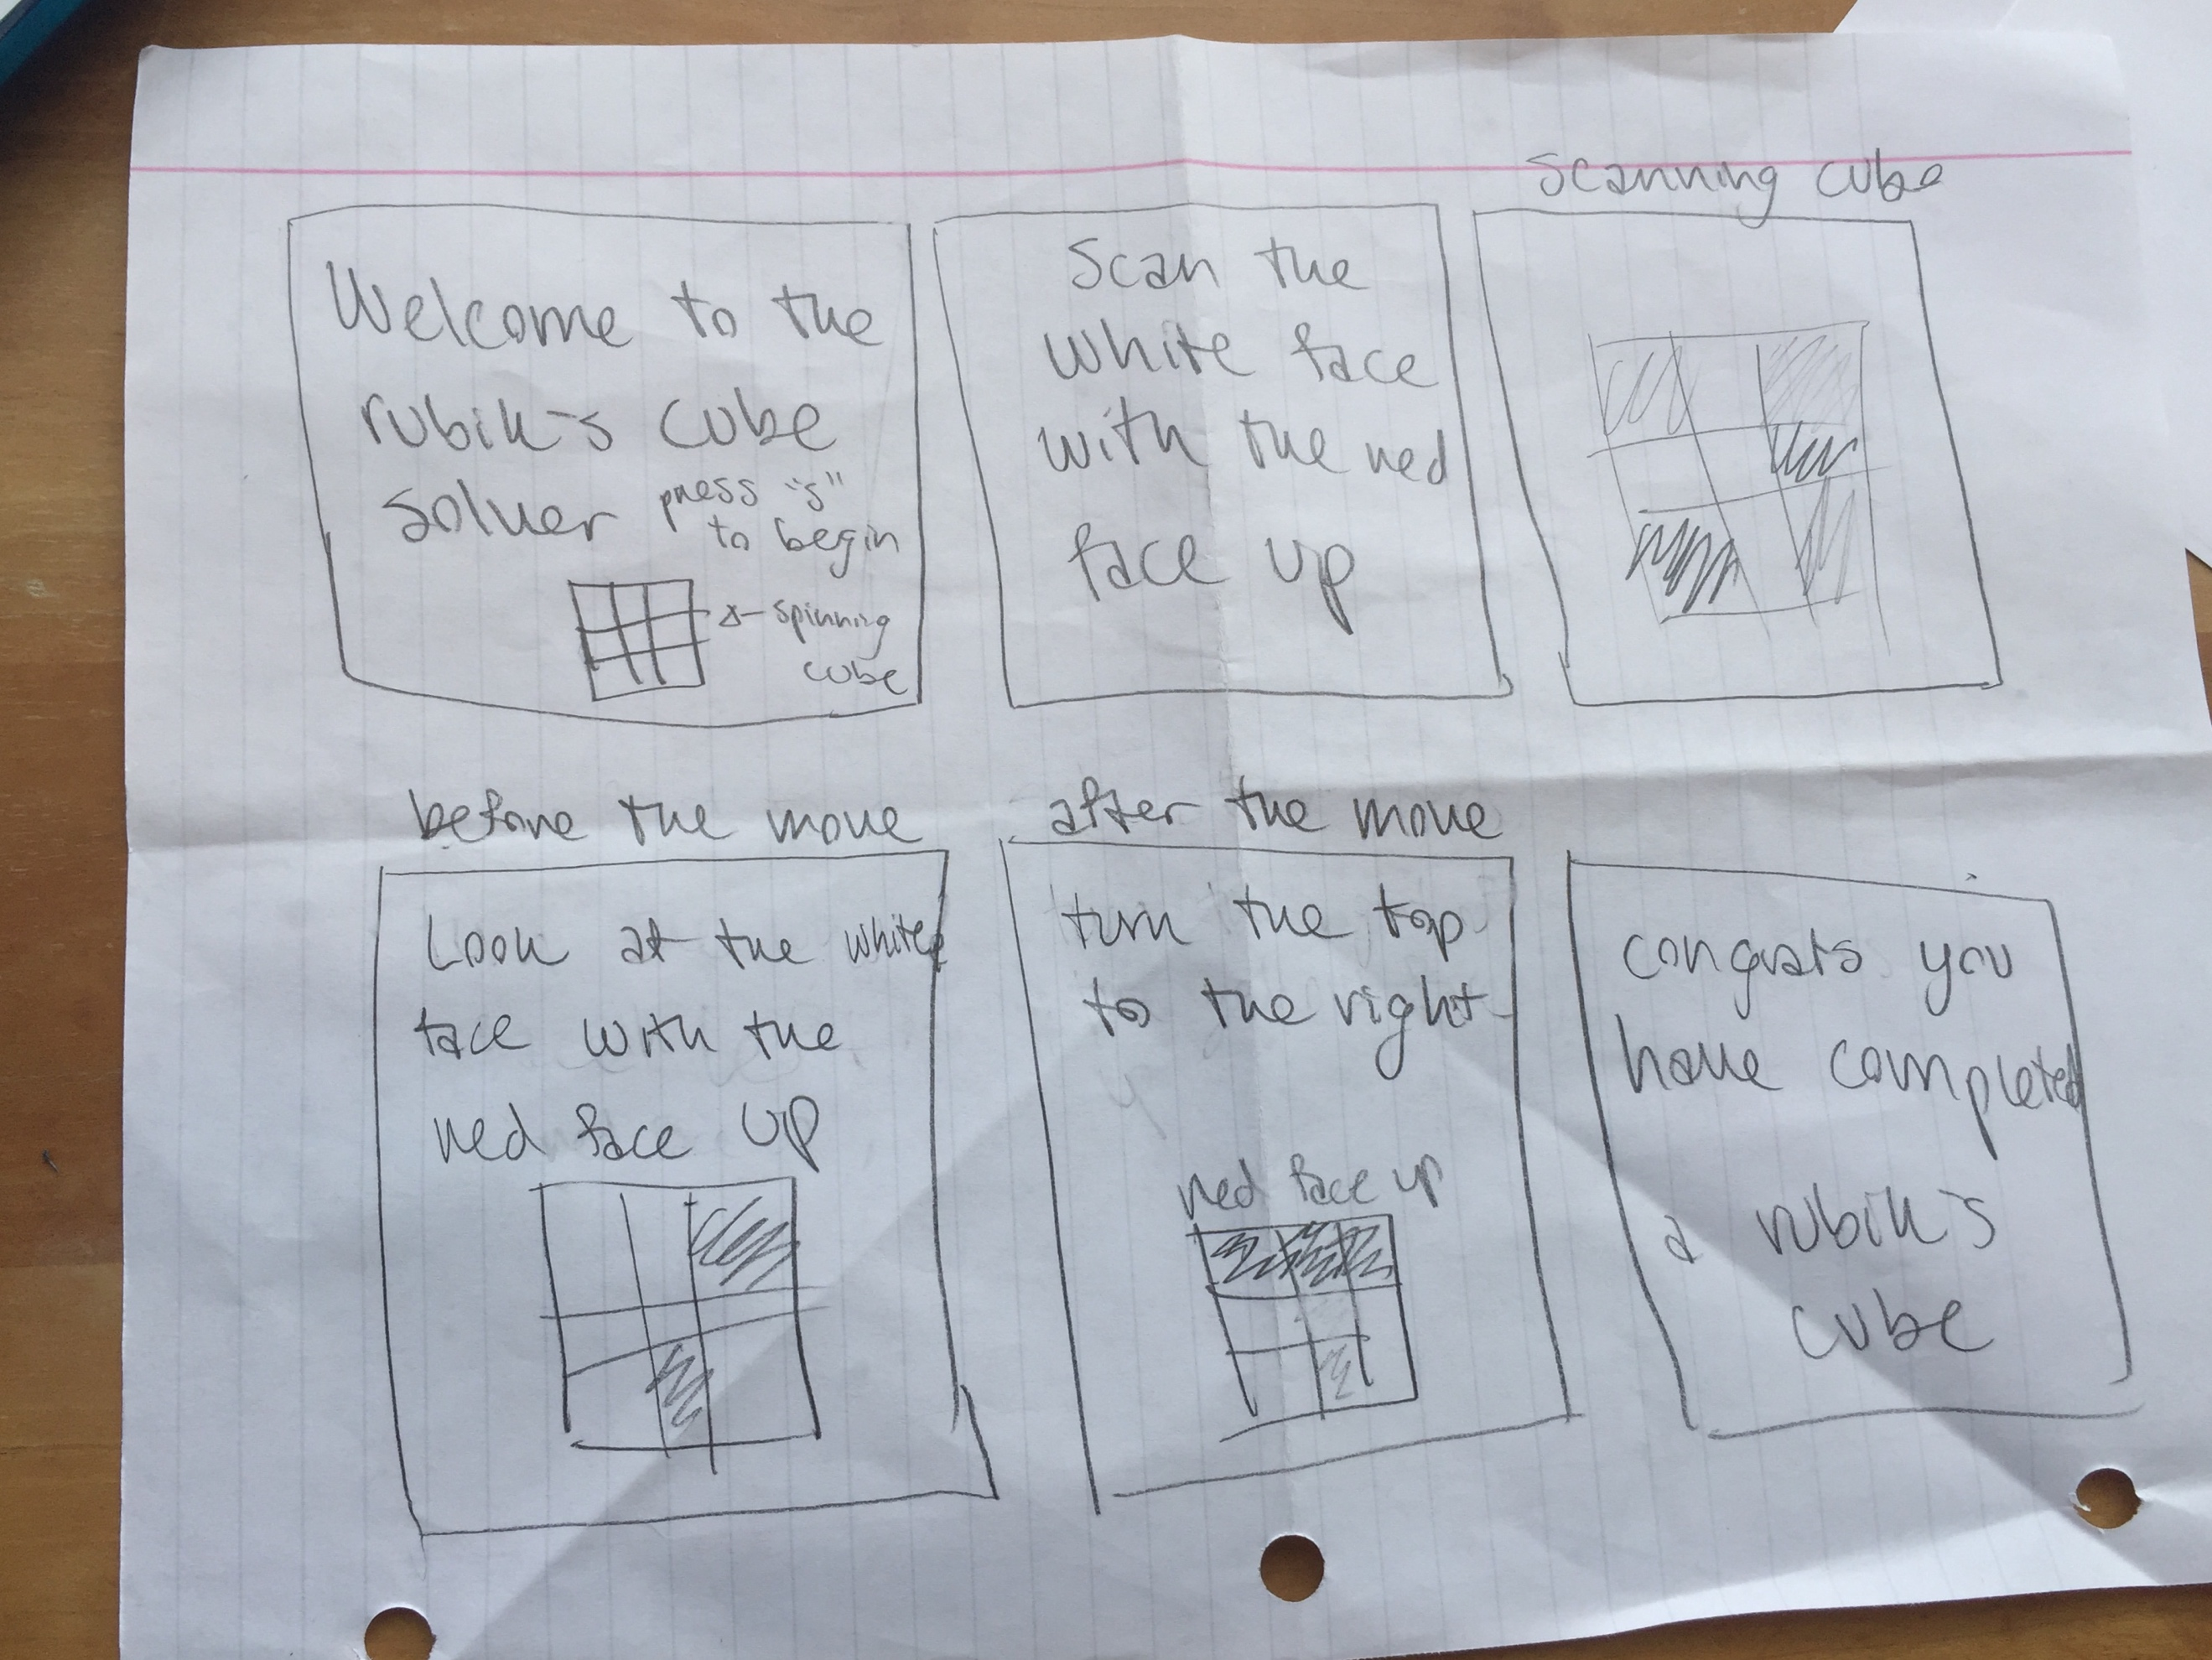 Welcome to the
rubik's cube
solver press "s"
to begin
spinning
cube
Scan the
white face
with the red
face up
Scanning cube
before the move
Look at the white
face with the
red face up
after the move
turn the top
to the right
red face up
congrats you
have completed
a rubik's
cube